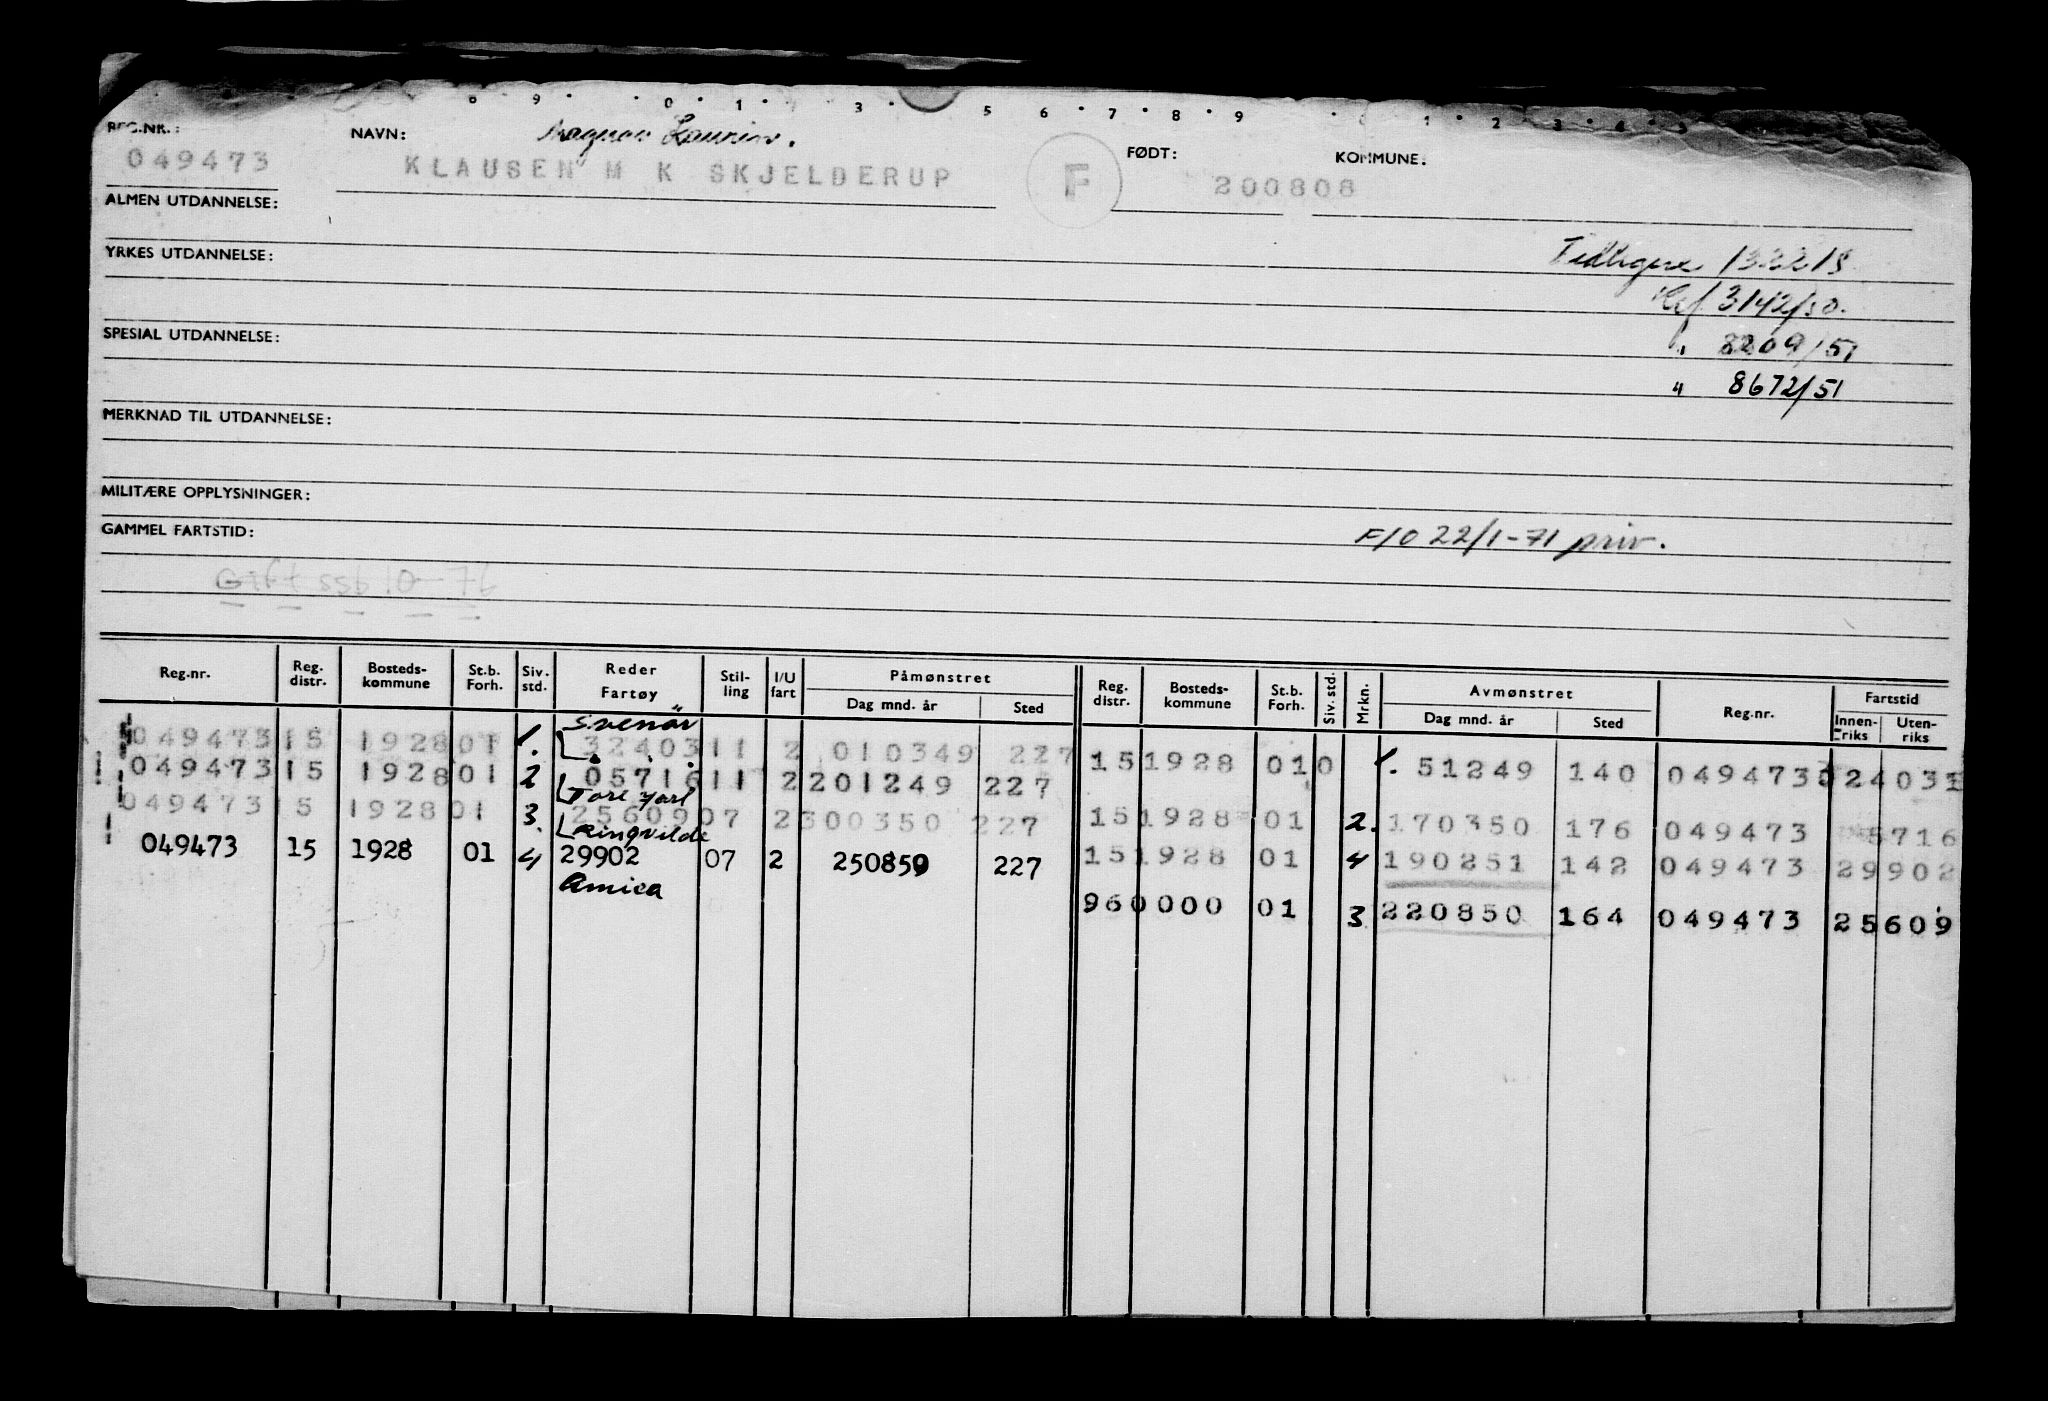 9 0 1 3 5 6 7 8 9 1 2 3 4 5
REG.NR.: NAVN: Magnus Laurin. FØDT: KOMMUNE:
049473 KLAUSEN M K SKJELDERUP F 200808
ALMEN UTDANNELSE:
YRKES UTDANNELSE: Tidligere 132218
Ref 3142/50.
SPESIAL UTDANNELSE: " 2209/51
" 8672/51
MERKNAD TIL UTDANNELSE:
MILITÆRE OPPLYSNINGER:
GAMMEL FARTSTID: F/O 22/1-71 priv.
Gift ssb 10-76
Reg.nr. Reg. distr. Bosteds-kommune St.b. Forh. Siv. std. Reder Fartøy Stil-ling I/U fart Påmønstret Dag mnd. år Sted Reg. distr. Bosteds-kommune St.b. Forh. Siv. std. Mrkn. Avmønstret Dag mnd. år Sted Reg.nr. Fartstid Innen-riks Uten-riks
Svenör
049473 15 1928 01 1. 32403 11 2 010349 227 15 1928 01 0 1. 51249 140 049473 024033
049473 15 1928 01 2 05716 11 2 201249 227
Tore Jarl
049473 15 1928 01 3. 25609 07 2 300350 227 15 1928 01 2. 170350 176 049473 5716
Ringvilde
049473 15 1928 01 4 29902 07 2 250850 227 15 1928 01 4 190251 142 049473 29902
Amica
960000 01 3 220850 164 049473 25609